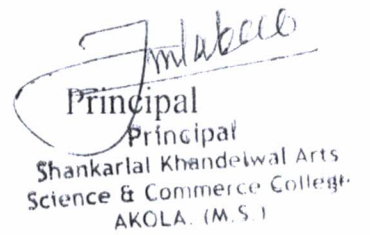 Principal
Principal
Shankarlal Khandelwal Arts
Science & Commerce College
AKOLA. (M.S.)